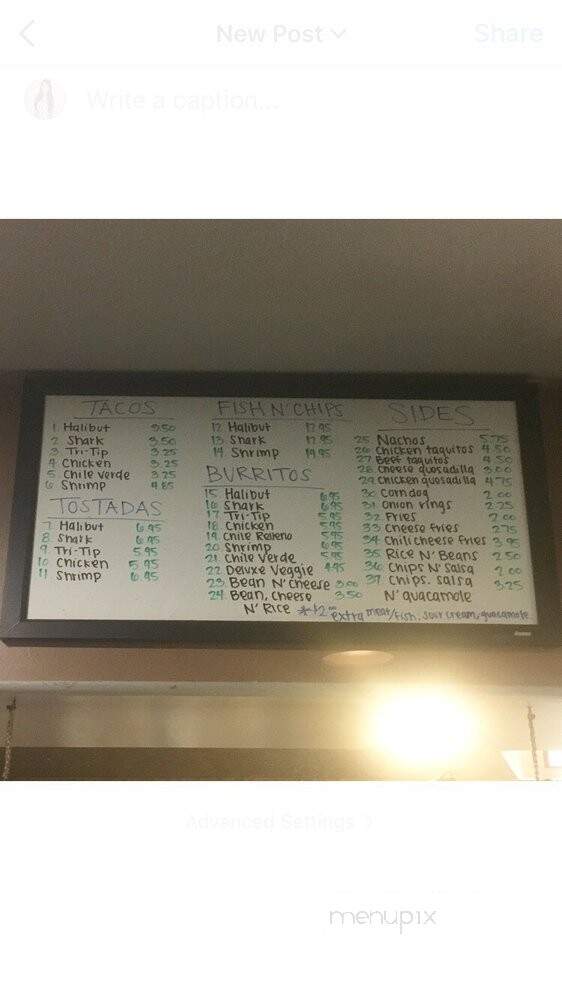 New Post
Share
Write a caption...
TACOS
1 Halibut 3.50
2 Shark 3.50
3 Tri-Tip 3.25
4 Chicken 3.25
5 Chile verde 3.25
6 Shrimp 4.85
TOSTADAS
7 Halibut 6.95
8 Shark 6.95
9 Tri-Tip 5.95
10 Chicken 5.95
11 Shrimp 6.95
FISH N' CHIPS
12 Halibut 12.95
13 Shark 12.95
14 Shrimp 14.95
BURRITOS
15 Halibut 6.95
16 Shark 6.95
17 Tri-Tip 5.95
18 Chicken 5.95
19 Chile Relleno 5.95
20 Shrimp 6.95
21 Chile Verde 5.95
22 Deluxe Veggie 4.95
23 Bean N' Cheese 3.00
24 Bean, Cheese 3.50
N' Rice
SIDES
25 Nachos 5.75
26 Chicken taquitos 4.50
27 Beef taquitos 4.50
28 Cheese quesadilla 3.00
29 Chicken quesadilla 4.75
30 Corndog 2.00
31 Onion rings 2.25
32 Fries 2.00
33 Cheese fries 2.75
34 Chili cheese fries 3.95
35 Rice N' Beans 2.50
36 Chips N' Salsa 2.00
37 Chips, salsa 3.25
N' guacamole
*$2.00 extra meat/fish, sour cream, guacamole
Advanced Settings
menupix